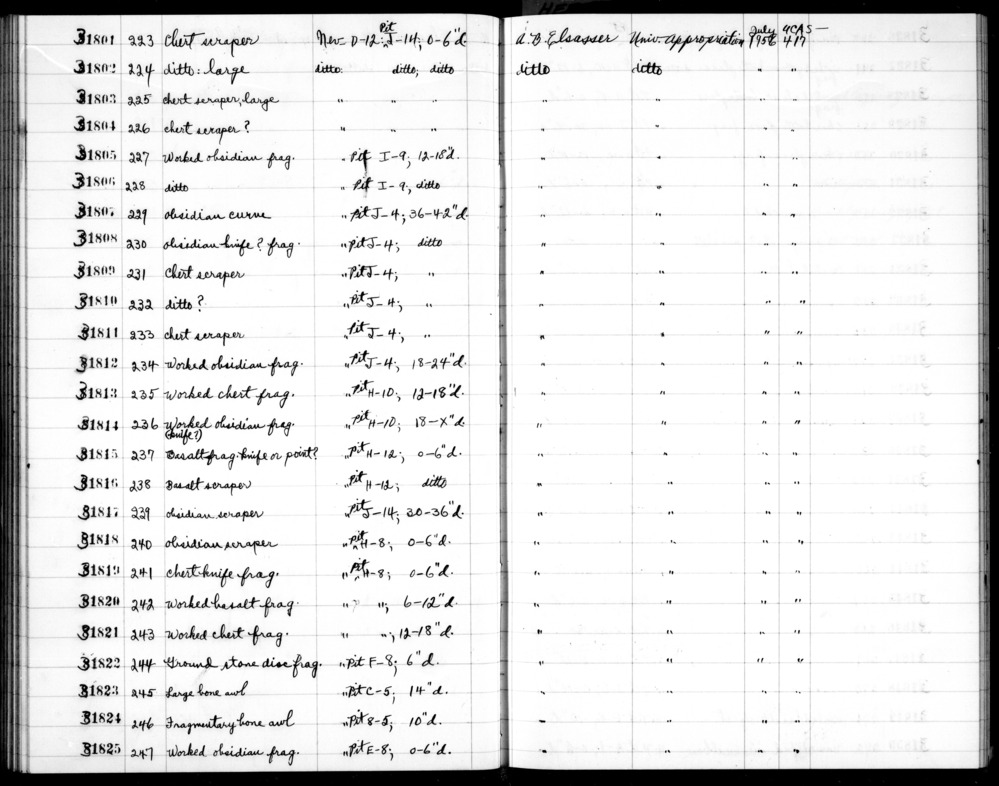 31801 223 Chert scraper Nev. D-12: Pit J-14; 0-6"d. A.B. Elsasser Univ. Appropriation July 1956 UCAS-417
31802 224 ditto: large ditto: ditto; ditto ditto ditto " "
31803 225 chert scraper, large " " " " " " "
31804 226 chert scraper? " " " " " " "
31805 227 Worked obsidian frag. " Pit I-9; 12-18"d. " " " "
31806 228 ditto " Pit I-9; ditto " " " "
31807 229 obsidian curve " Pit J-4; 36-42"d. " " " "
31808 230 obsidian knife? frag. " Pit J-4; ditto " " " "
31809 231 Chert scraper " Pit J-4; " " " " "
31810 232 ditto? " Pit J-4; " " " " "
31811 233 chert scraper " Pit J-4; " " " " "
31812 234 Worked obsidian frag. " Pit J-4; 18-24"d. " " " "
31813 235 Worked chert frag. " Pit H-10; 12-18"d. " " " "
31814 236 Worked obsidian frag. " Pit H-10; 18-X"d. " " " "
(knife?)
31815 237 Basalt frag. knife or point? " Pit H-12; 0-6"d. " " " "
31816 238 Basalt scraper " Pit H-12; ditto " " " "
31817 239 obsidian scraper " Pit J-14; 30-36"d. " " " "
31818 240 obsidian scraper " Pit H-8; 0-6"d. " " " "
31819 241 chert knife frag. " Pit H-8; 0-6"d. " " " "
31820 242 Worked basalt frag. " " "; 6-12"d. " " " "
31821 243 Worked chert frag. " "; 12-18"d. " " " "
31822 244 Ground stone disc frag. " Pit F-8; 6"d. " " " "
31823 245 Large bone awl " Pit C-5; 14"d. " " " "
31824 246 Fragmentary bone awl " Pit 8-5; 10"d. " " " "
31825 247 Worked obsidian frag. " Pit E-8; 0-6"d. " " " "